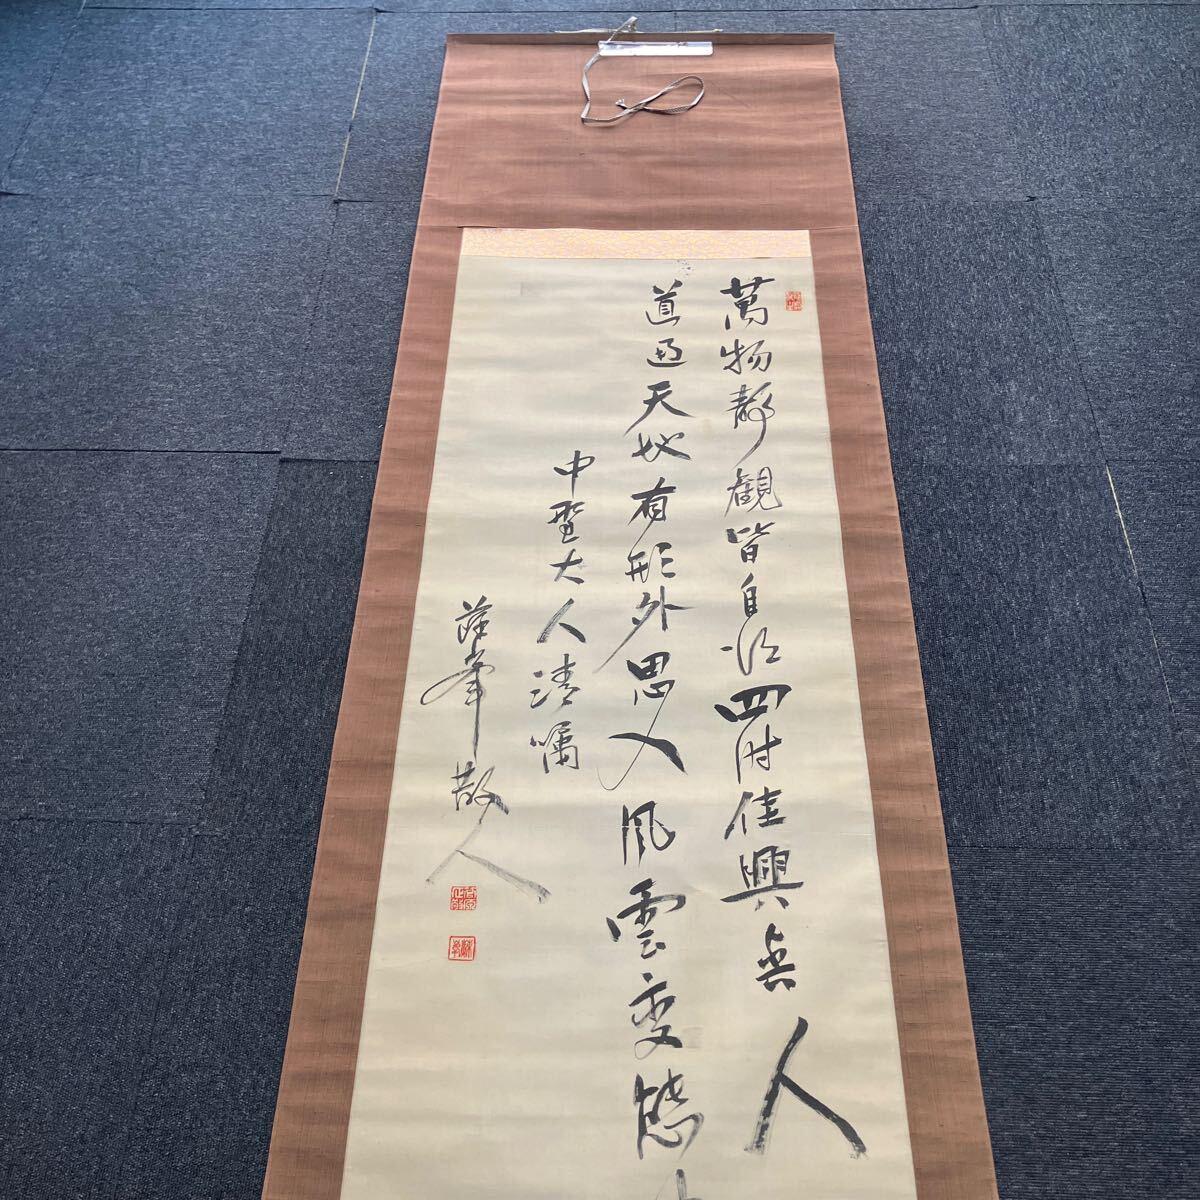 萬物静觀皆自得四時佳興與人
道通天地有形外思入風雲變態
中野大人清嘱
蘇峯散人